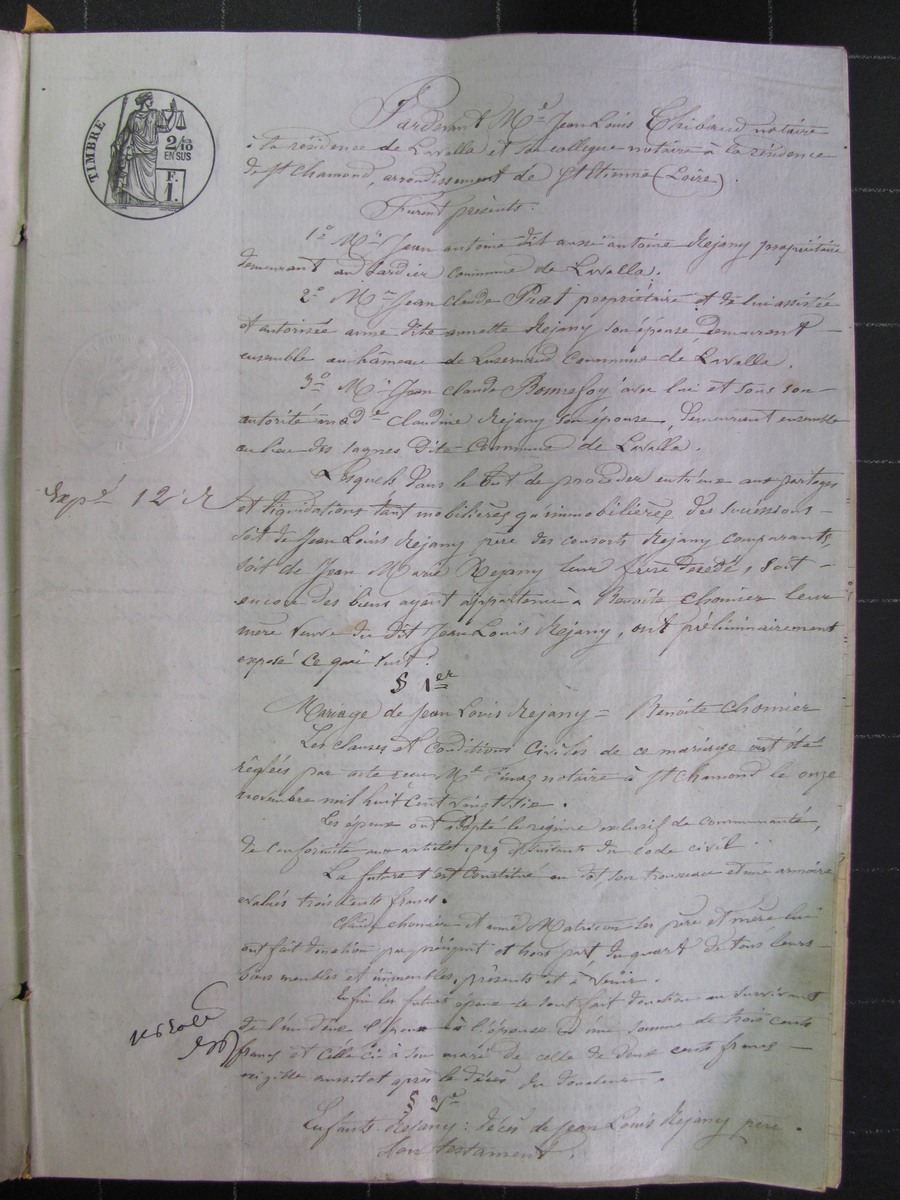 TIMBRE
2/10
EN SUS
F.
1.
Pardevant Me Jean Louis Thibaud notaire
à la résidence de Lavalla et son collègue notaire à la résidence
de St Chamond, arrondissement de St Etienne (Loire).
Furent présents:
1º Mr Jean antoine dit aussi antoine Rejany propriétaire
demeurant au commune de Lavalla.
2º Mr Jean Claude Prat propriétaire et de lui assistée
et autorisée anne dite annette Rejany son épouse, demeurant
ensemble au hameau de Luzernaud commune de Lavalla.
3º Mr Jean Claude Bonnefoy avec lui et sous son
autorité mad.e Claudine Rejany son épouse, demeurant ensemble
au lieu des sagnes dite commune de Lavalla.
Lesquels dans le but de procéder entr'eux aux partages
Expé 12 r
et liquidations tant mobilières qu'immobilières des successions
soit de Jean Louis Rejany père des consorts Rejany comparants,
soit de Jean Marie Rejany leur frère décédé, soit
encore des biens ayant appartenu à Benoite Chomier leur
mère veuve du dit Jean Louis Rejany, ont préliminairement
exposé ce qui suit:
§ 1er
Mariage de Jean Louis Rejany = Benoite Chomier
Les clauses et conditions civiles de ce mariage ont été
réglées par acte reçu Me Finaz notaire à St Chamond le onze
novembre mil huit cent vingt six.
Les époux ont adopté le régime exclusif de communauté,
de conformité aux articles 1529 et suivants du code civil.
La future s'est constitué en dot, son trousseau et une armoire
évalués trois cents francs.
Claude Chomier et anne Matricon ses père et mère, lui
ont fait donation par préciput et hors part du quart de tous leurs
biens meubles et immeubles, présents et à venir.
Enfin les futurs époux se sont fait donation au survivant
de l'un d'eux l'époux à l'épouse d'une somme de trois cents
francs et celle ci à son mari de celle de deux cents francs
exigible aussitot après le décès du donateur.
§ 2e
Enfants Rejany: décès de Jean Louis Rejany père.
Son testament.